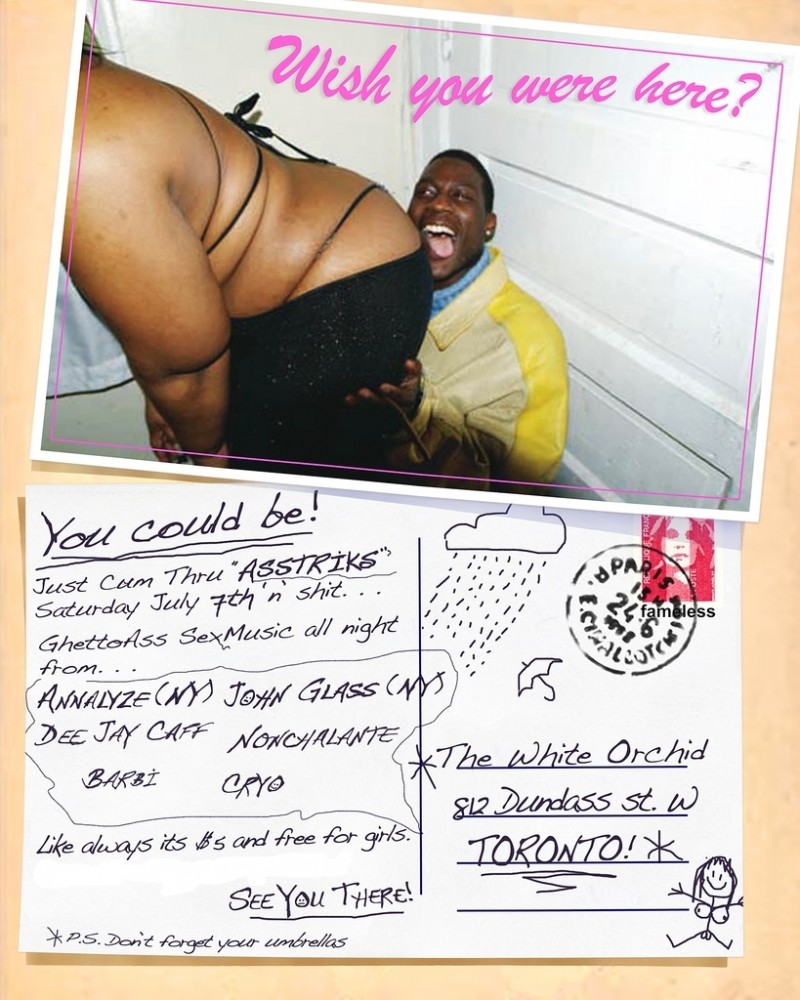 Wish you were here?
You could be!
Just Cum Thru "ASSTRIKS"
Saturday July 7th 'n' shit. . .
GhettoAss SexMusic all night
from. . .
ANNALYZE (NY) JOHN GLASS (NY)
DEE JAY CAFF NONCHALANTE
BARBI CRYO
Like always its $5 and free for girls.
SEE YOU THERE!
*P.S. Don't forget your umbrellas
PARIS
24-6
fameless
*The White Orchid
812 Dundass st. W
TORONTO! *